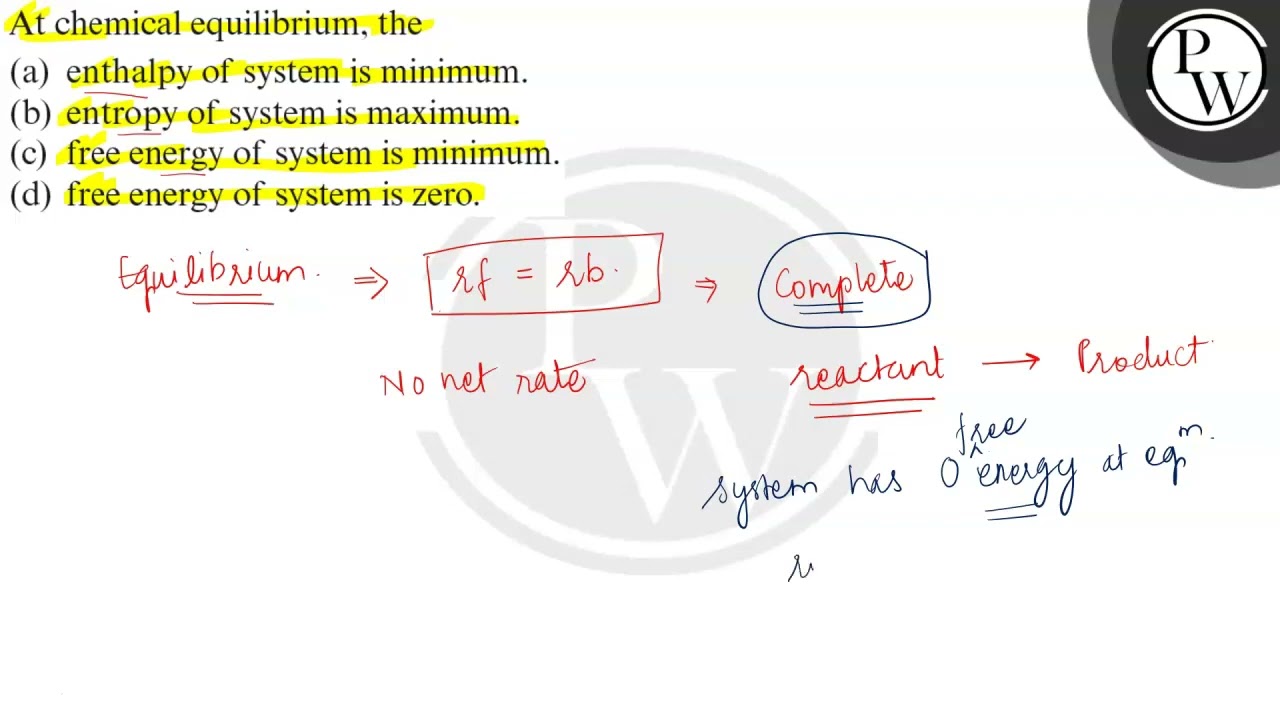 At chemical equilibrium, the
(a) enthalpy of system is minimum.
(b) entropy of system is maximum.
(c) free energy of system is minimum.
(d) free energy of system is zero.
P
W
Equilibrium. ⇒ rf = rb. ⇒ Complete
No net rate
reactant → Product.
free
system has 0 ^ energy at eqm.
r
P
W